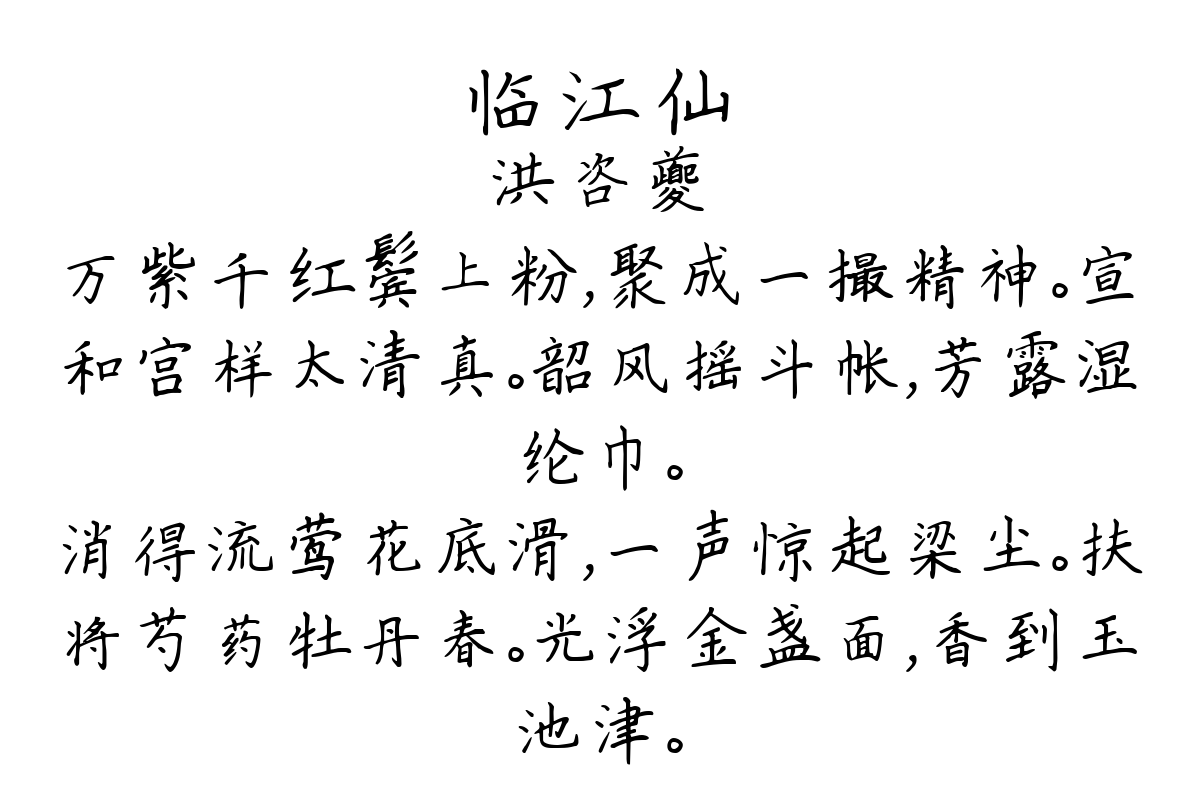 临江仙
洪咨夔
万紫千红鬓上粉,聚成一撮精神。宣
和宫样太清真。韶风摇斗帐,芳露湿
纶巾。
消得流莺花底滑,一声惊起梁尘。扶
将芍药牡丹春。光浮金盏面,香到玉
池津。